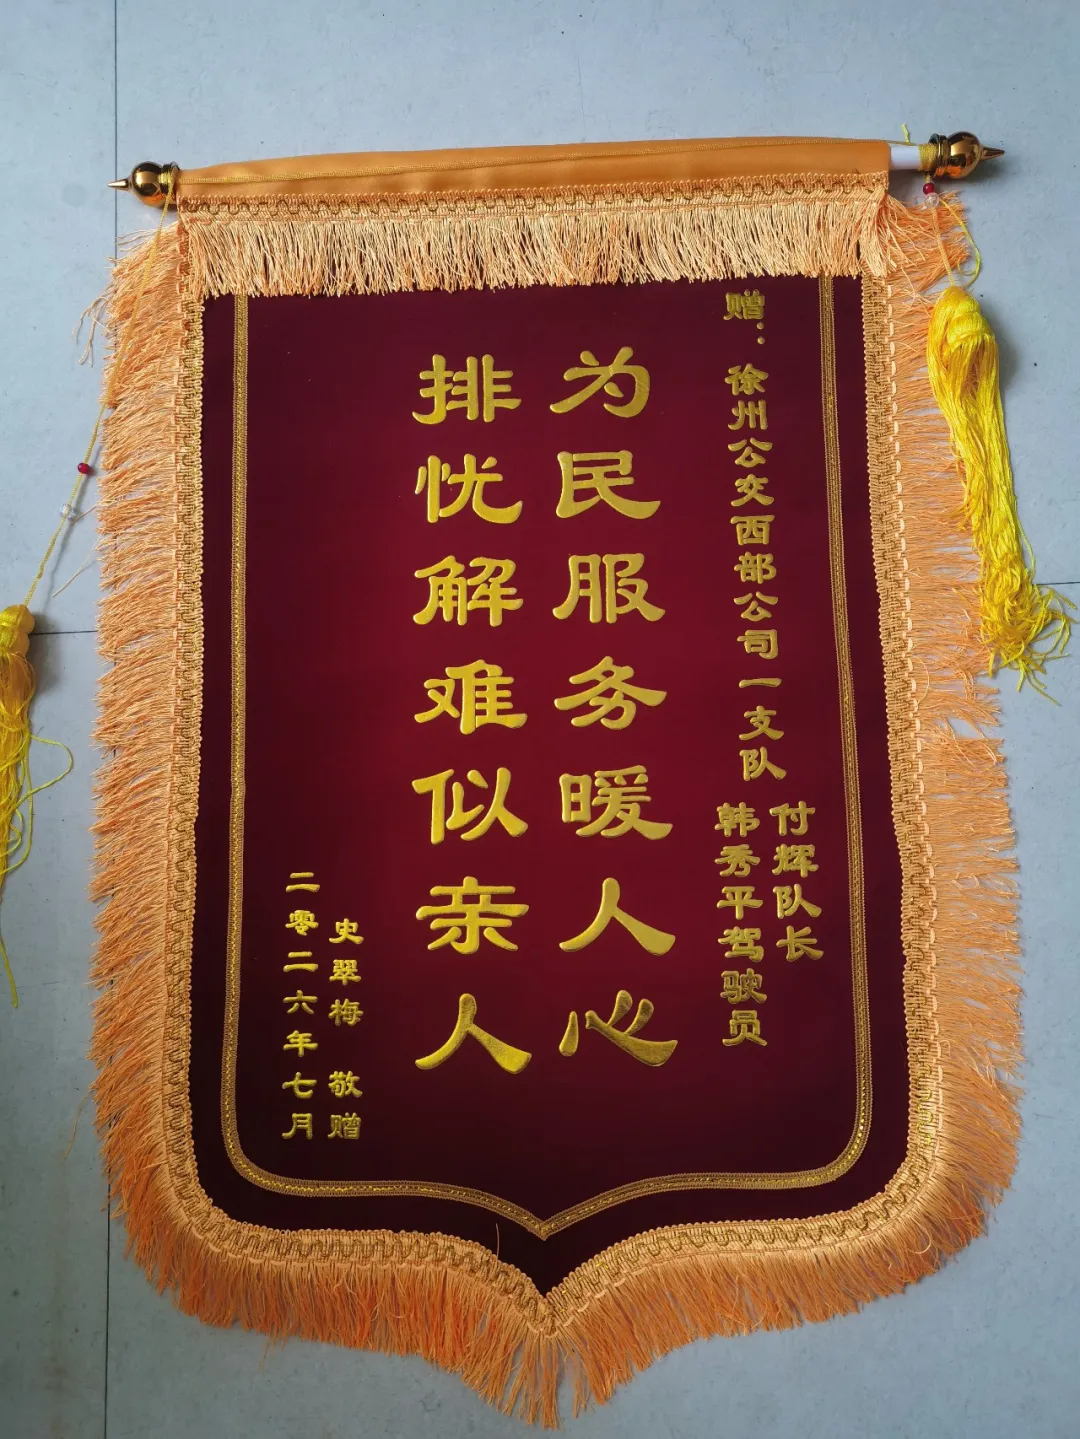 赠：徐州公交西部公司一支队
付辉队长
韩秀平驾驶员
为民服务暖人心
排忧解难似亲人
史翠梅 敬赠
二零二六年七月